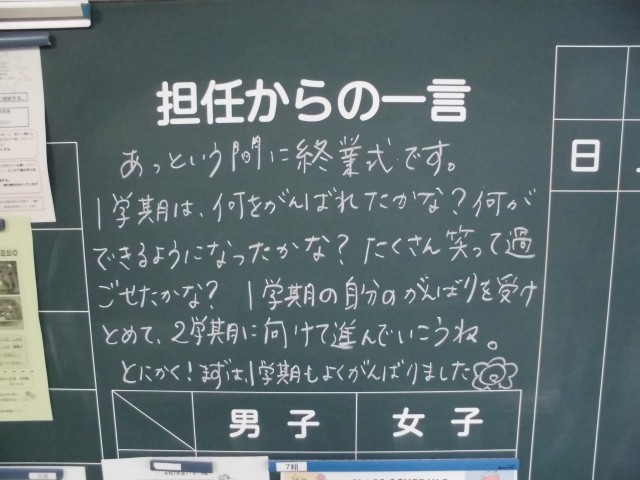 担任からの一言
あっという間に終業式です。
1学期は、何をがんばれたかな？何が
できるようになったかな？たくさん笑って過
ごせたかな？ 1学期の自分のがんばりを受け
とめて、2学期に向けて進んでいこうね。
とにかく！まずは、1学期もよくがんばりました
日
男子 女子
7組